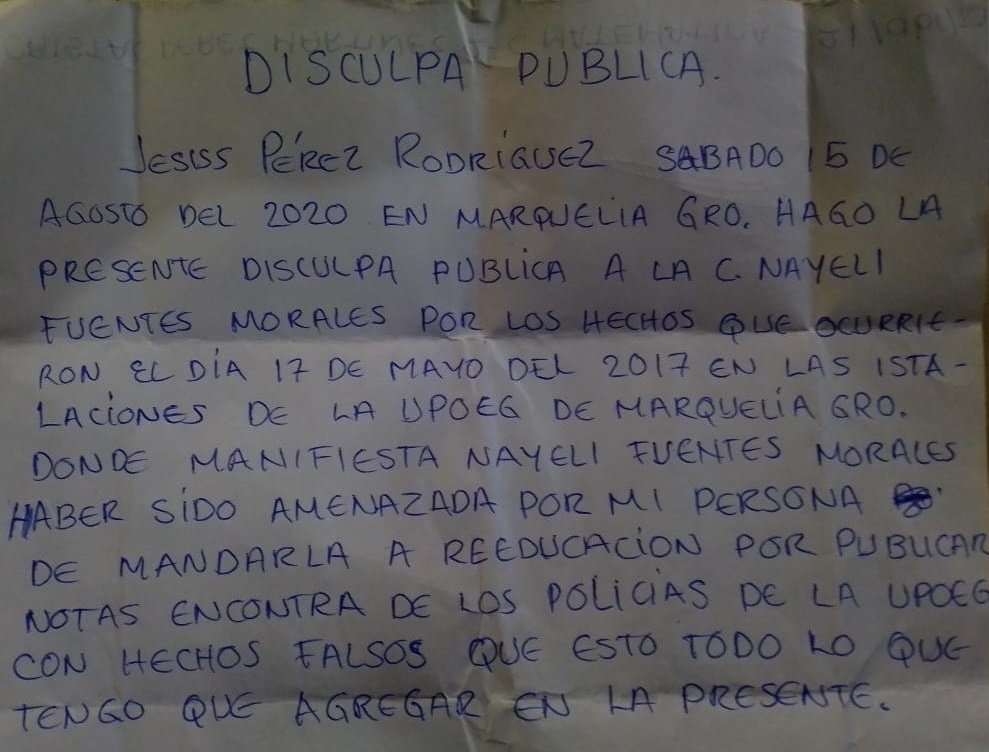 DISCULPA PUBLICA.
JESUS PÉREZ RODRÍGUEZ SABADO 15 DE
AGOSTO DEL 2020 EN MARQUELIA GRO. HAGO LA
PRESENTE DISCULPA PUBLICA A LA C. NAYELI
FUENTES MORALES POR LOS HECHOS QUE OCURRIE-
RON EL DÍA 17 DE MAYO DEL 2017 EN LAS ISTA-
LACIONES DE LA UPOEG DE MARQUELIA GRO.
DONDE MANIFIESTA NAYELI FUENTES MORALES
HABER SIDO AMENAZADA POR MI PERSONA
DE MANDARLA A REEDUCACION POR PUBLICAR
NOTAS ENCONTRA DE LOS POLICIAS DE LA UPOEG
CON HECHOS FALSOS QUE ESTO TODO LO QUE
TENGO QUE AGREGAR EN LA PRESENTE.